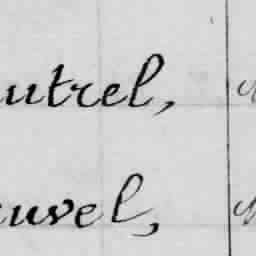 utrel,
uvel,